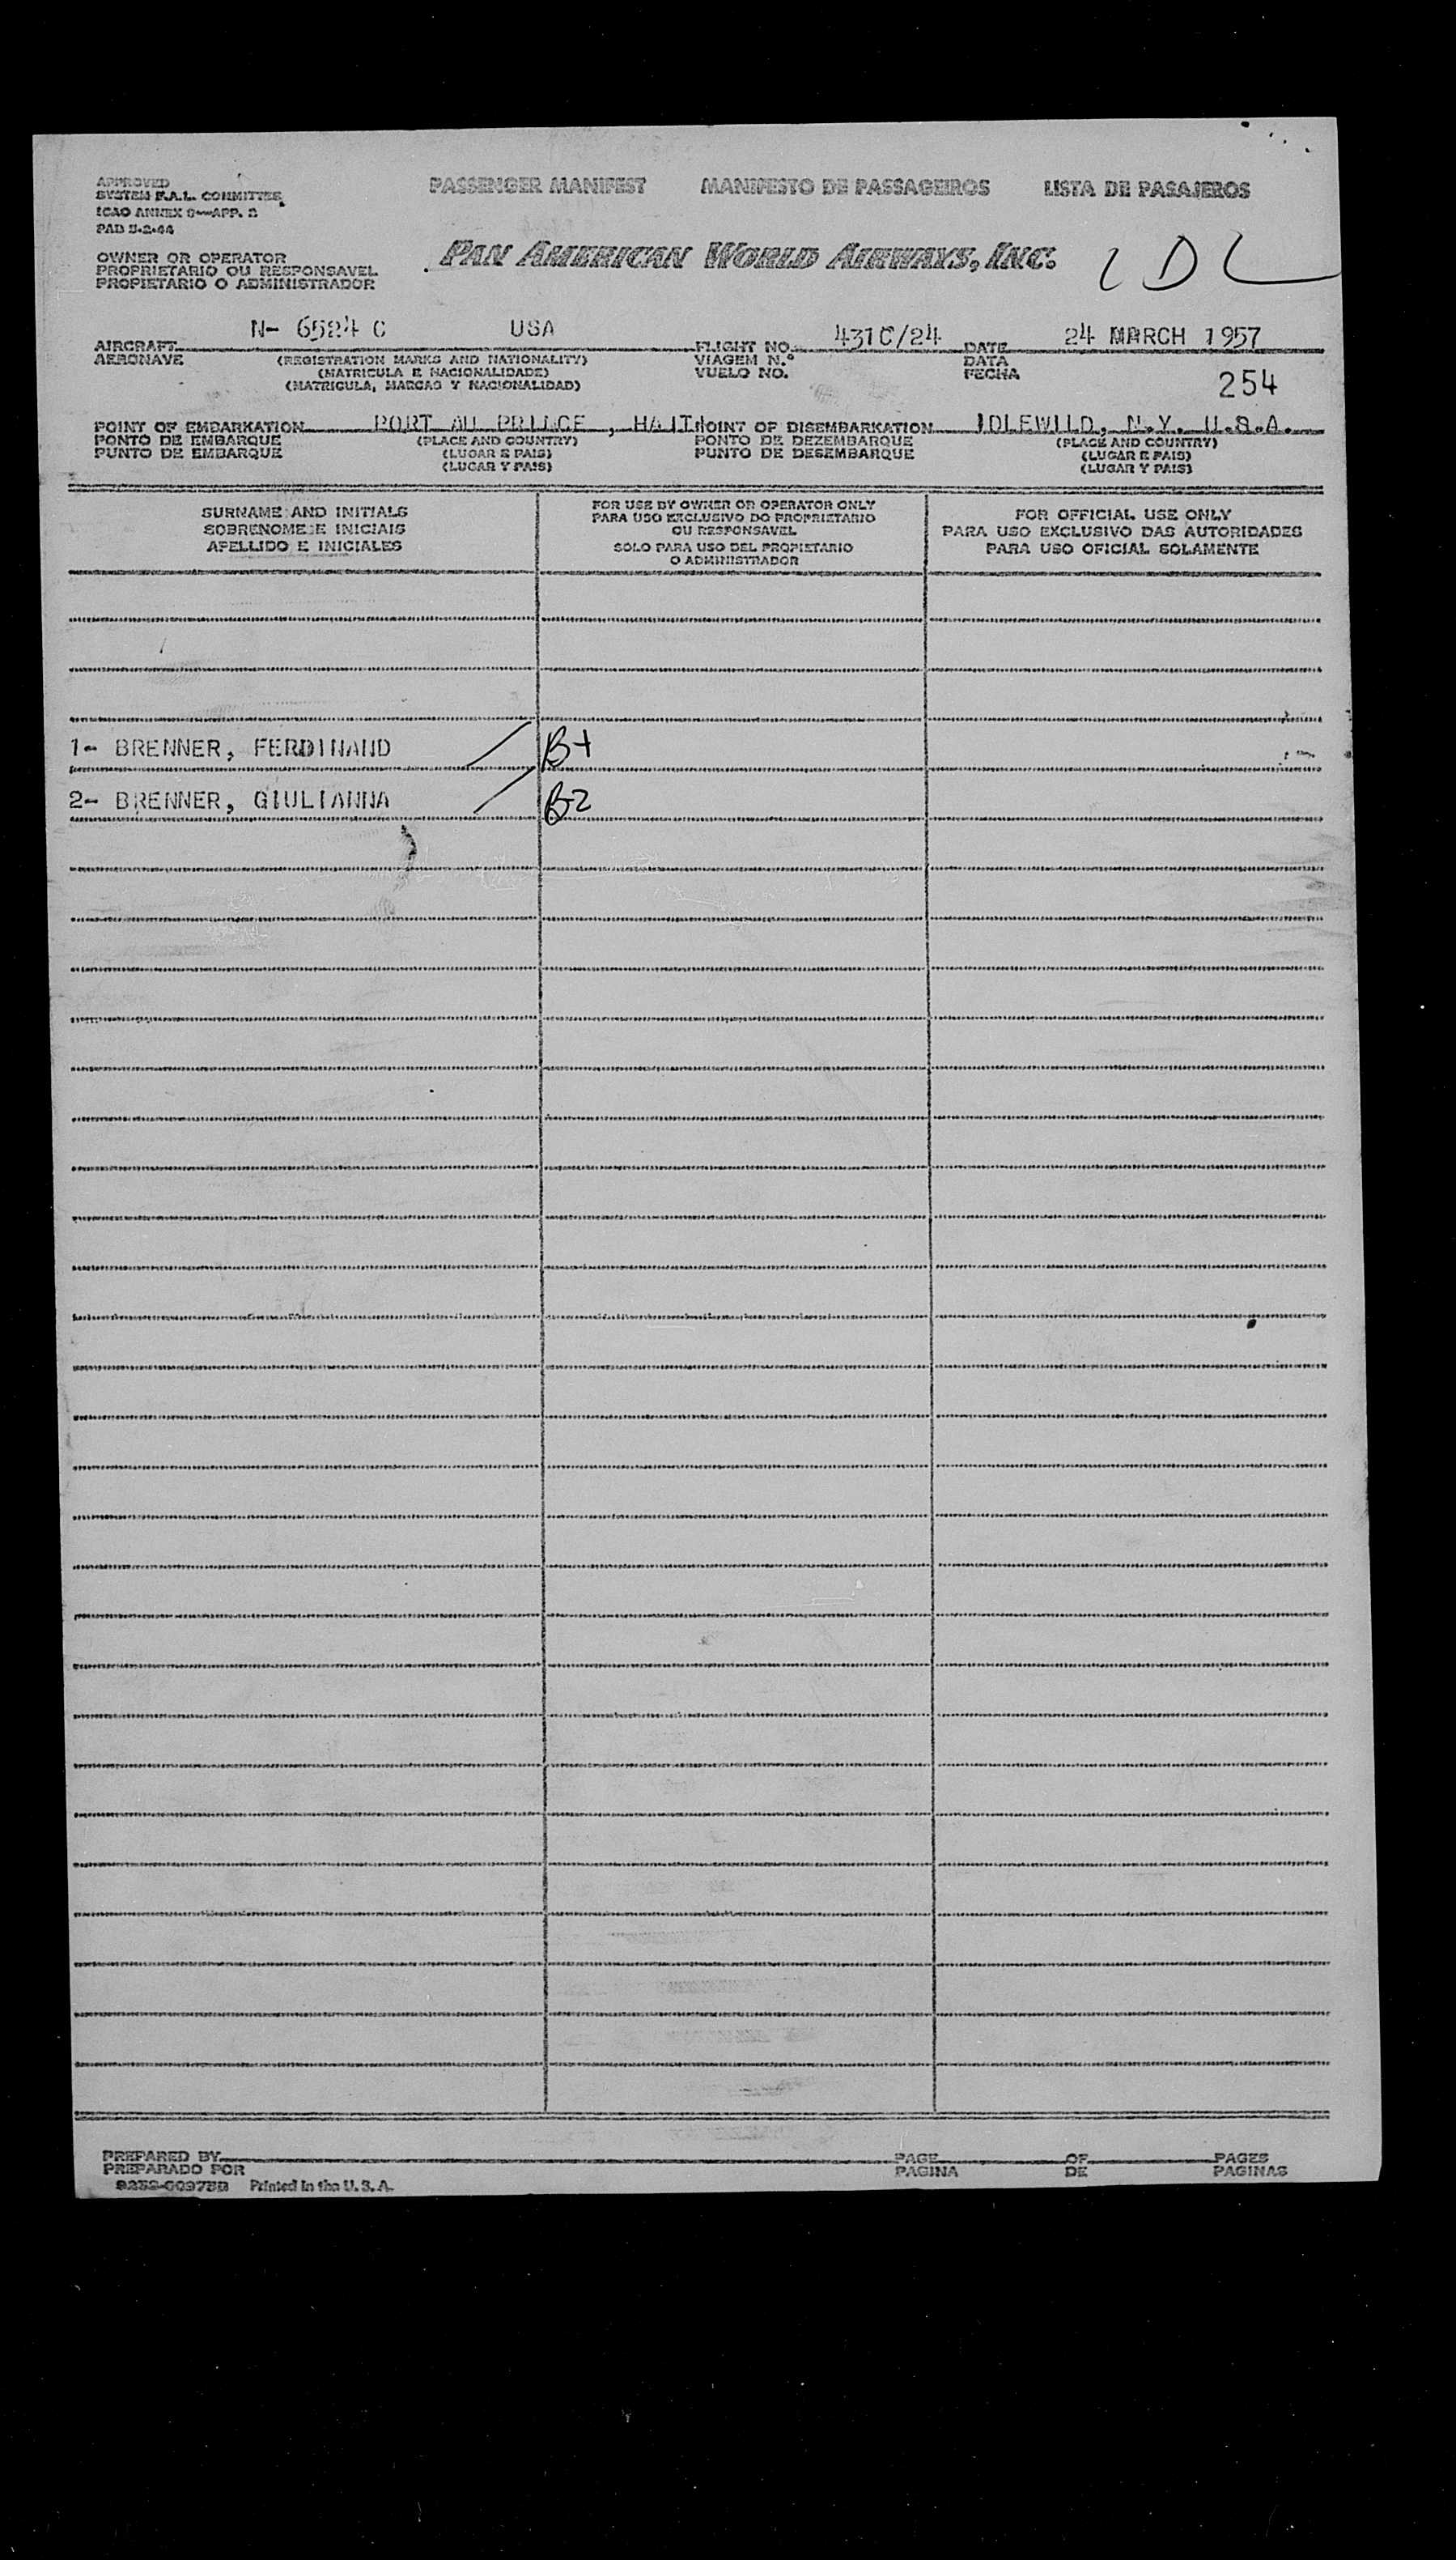 APPROVED
SYSTEM F.A.L. COMMITTEE
ICAO ANNEX 9—APP. 3
PAD 5-2-44
PASSENGER MANIFEST MANIFESTO DE PASSAGEIROS LISTA DE PASAJEROS
OWNER OR OPERATOR
PROPRIETARIO OU RESPONSAVEL
PROPIETARIO O ADMINISTRADOR
PAN AMERICAN WORLD AIRWAYS, INC.
IDL
AIRCRAFT N- 6524 C USA FLIGHT NO. 431C/24 DATE 24 MARCH 1957
AERONAVE (REGISTRATION MARKS AND NATIONALITY) VIAGEM N.º DATA
(MATRICULA E NACIONALIDADE) VUELO NO. FECHA
(MATRICULA, MARCAS Y NACIONALIDAD) 254
POINT OF EMBARKATION PORT AU PRINCE , HAITI POINT OF DISEMBARKATION IDLEWILD, N.Y. U.S.A.
PONTO DE EMBARQUE (PLACE AND COUNTRY) PONTO DE DEZEMBARQUE (PLACE AND COUNTRY)
PUNTO DE EMBARQUE (LUGAR E PAIS) PUNTO DE DESEMBARQUE (LUGAR E PAIS)
(LUGAR Y PAIS) (LUGAR Y PAIS)
SURNAME AND INITIALS
SOBRENOME E INICIAIS
APELLIDO E INICIALES
FOR USE BY OWNER OR OPERATOR ONLY
PARA USO EXCLUSIVO DO PROPRIETARIO
OU RESPONSAVEL
SOLO PARA USO DEL PROPIETARIO
O ADMINISTRADOR
FOR OFFICIAL USE ONLY
PARA USO EXCLUSIVO DAS AUTORIDADES
PARA USO OFICIAL SOLAMENTE
1- BRENNER, FERDINAND B-1
2- BRENNER, GIULIANNA B-2
PREPARED BY PAGE OF PAGES
PREPARADO POR PAGINA DE PAGINAS
Printed in the U.S.A.